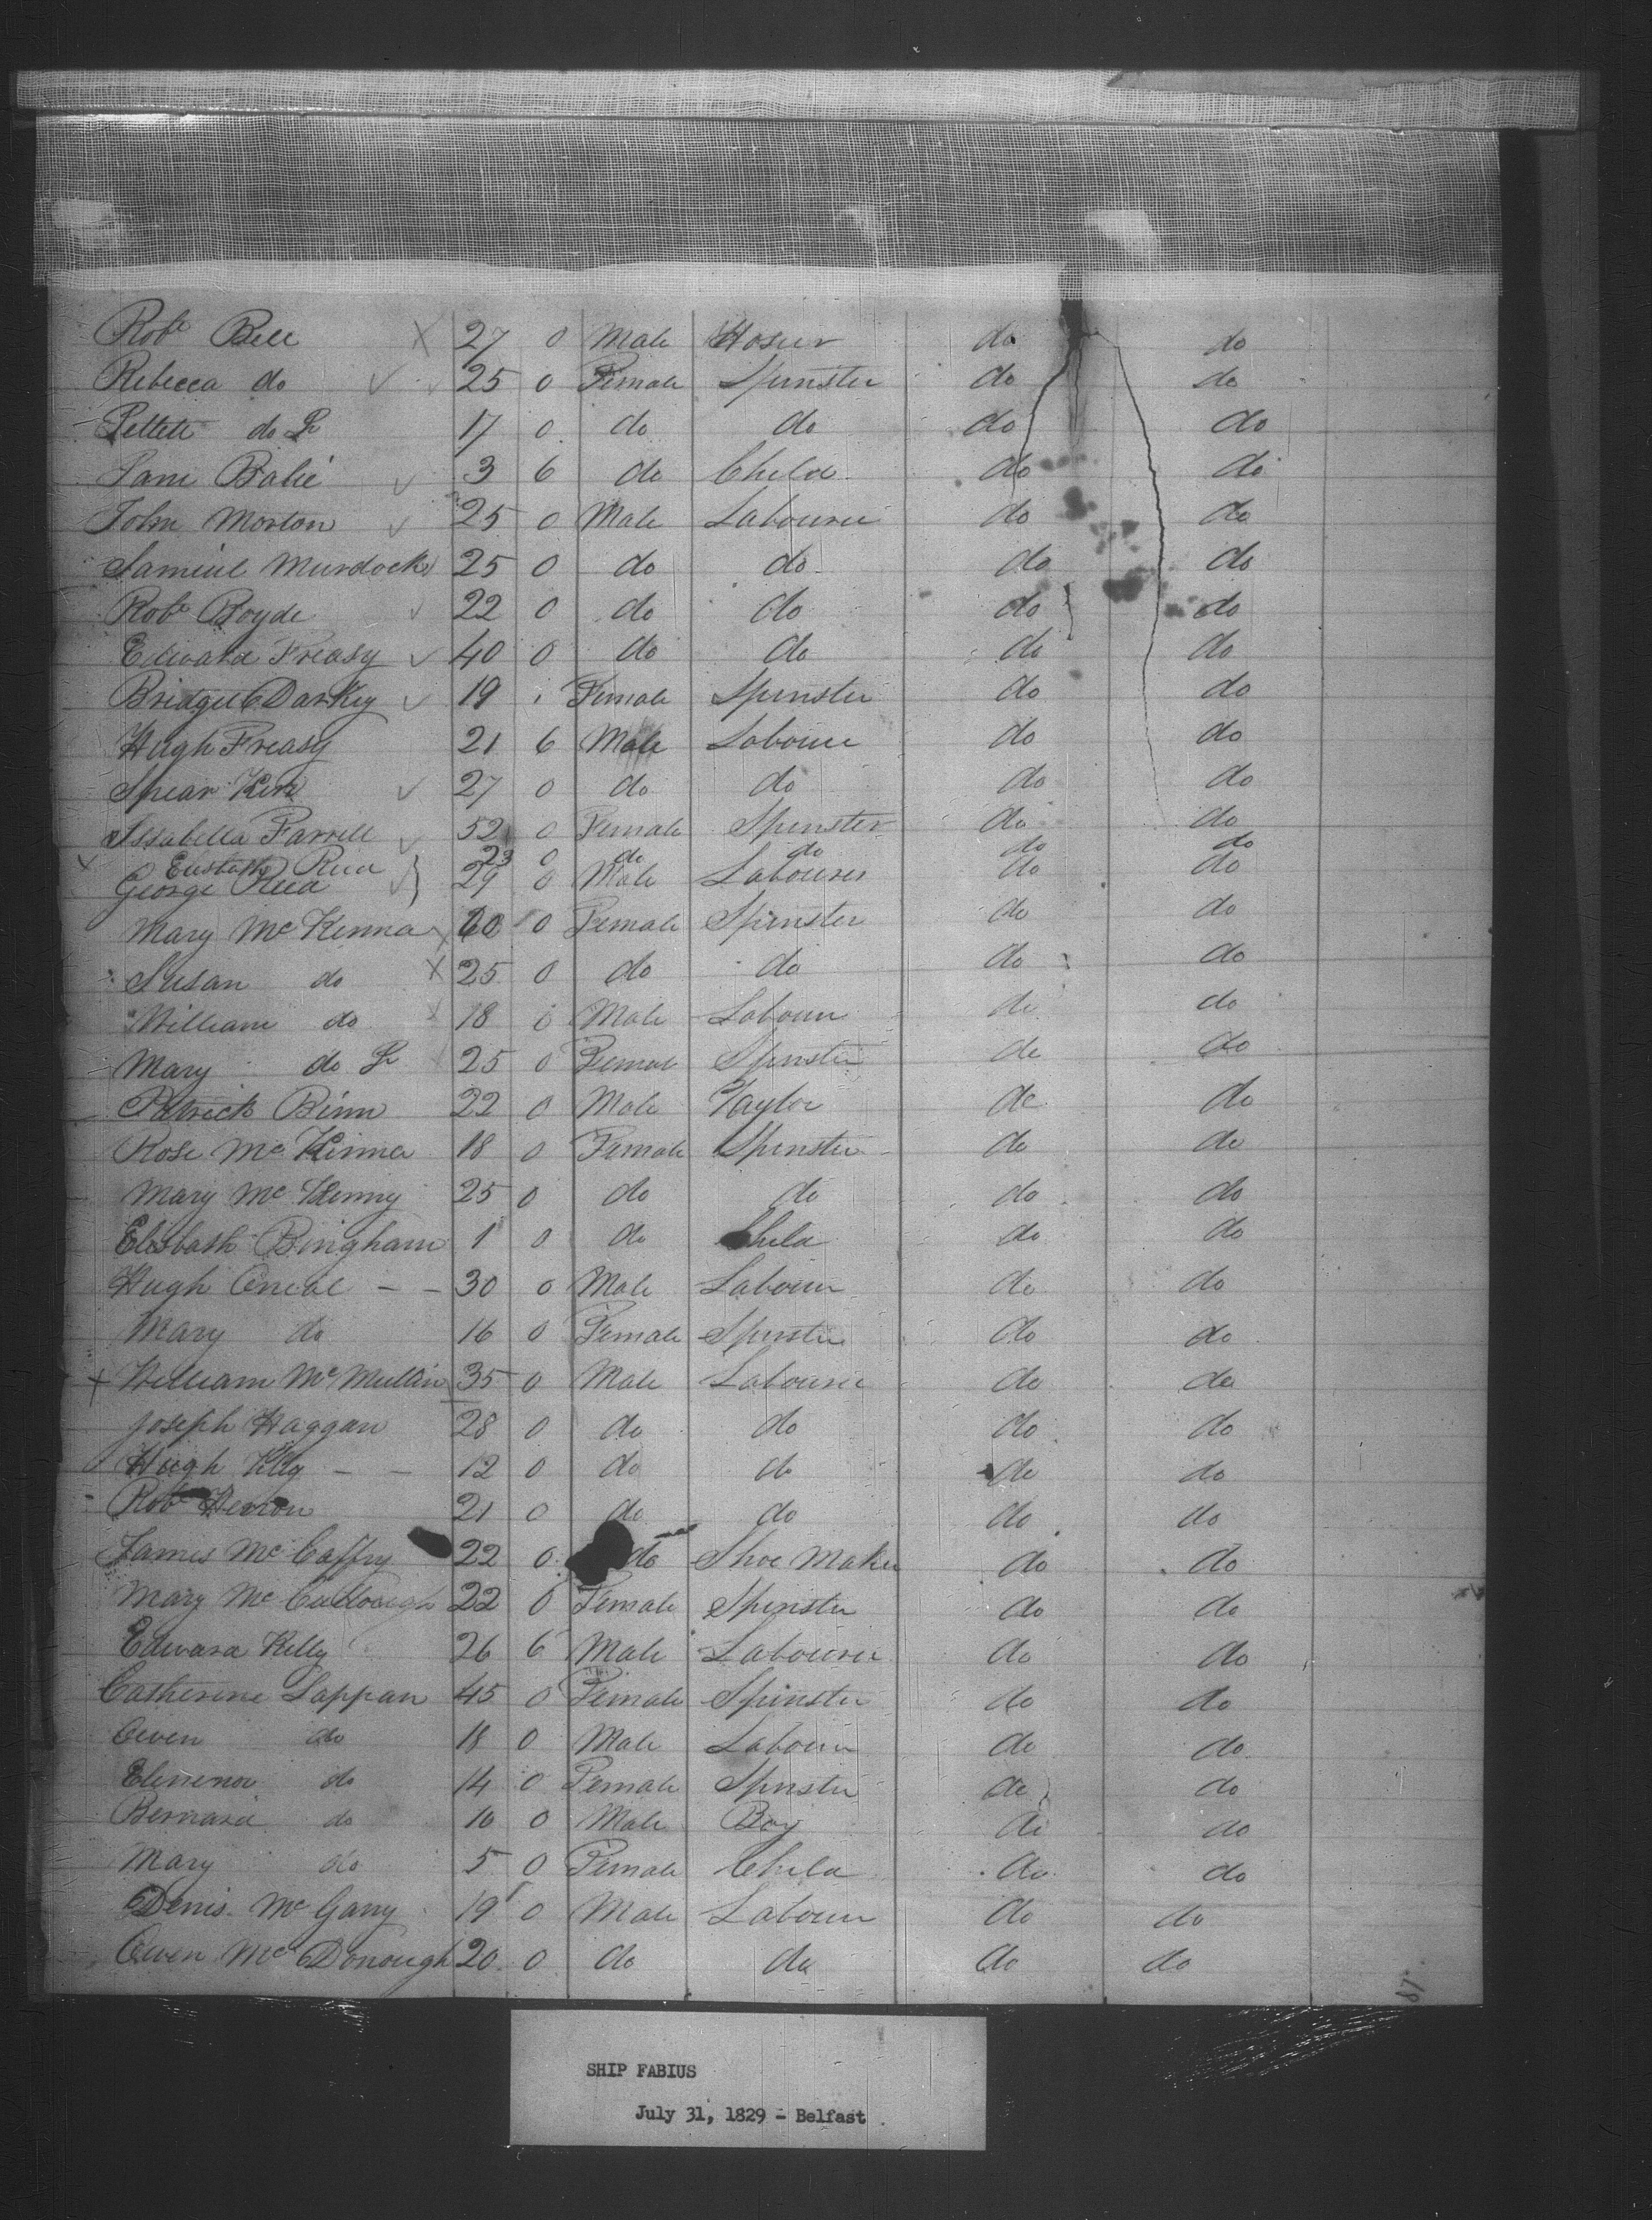 Robt Bell X 27 0 Male Hosier do do
Rebecca do 25 0 Female Spinster do do
do Jr 17 0 do do do do
Babie 3 6 do Child do do
John Morton 25 0 Male Labourer do do
Samuel Murdock 25 0 do do do do
Robt Boyde 22 0 do do do do
Edward Treasy 40 0 do do do do
Bridget Darkey 19 Female Spinster do do
Hugh Treasy 21 6 Male Labourer do do
Spear Kerr 27 0 do do do do
Issabella Farrell 52 0 Female Spinster do do
X Rea 23 0 do do do do
George Rea 29 0 Male Labourer do do
Mary McKenna X 0 Female Spinster do do
Susan do X 25 0 do do do do
William do X 18 0 Male Labourer do do
Mary do Jr 25 0 Female Spinster do do
Patrick Binn 22 0 Male Taylor do do
Rose McKinna 18 0 Female Spinster do do
Mary McKenny 25 0 do do do do
Elisbath Bingham 1 0 do Child do do
Hugh Oneal - - 30 0 Male Labourer do do
Mary do 16 0 Female Spinster do do
X William McMullin 35 0 Male Labourer do do
Joseph Haggan 28 0 do do do do
Hugh Kelly - - 12 0 do do do do
Robt Herron 21 0 do do do do
James McCaffry 22 0 do Shoe Maker do do
Mary McCullough 22 0 Female Spinster do do
Edward Kelly 26 6 Male Labourer do do
Catherine Lappan 45 0 Female Spinster do do
Owen do 18 0 Male Labourer do do
Elenenor do 14 0 Female Spinster do do
Bernard do 10 0 Male Boy do do
Mary do 5 0 Female Child do do
Denis McGarry 19 0 Male Labourer do do
Owen McDonough 20 0 do do do do
87
SHIP FABIUS
July 31, 1829 - Belfast